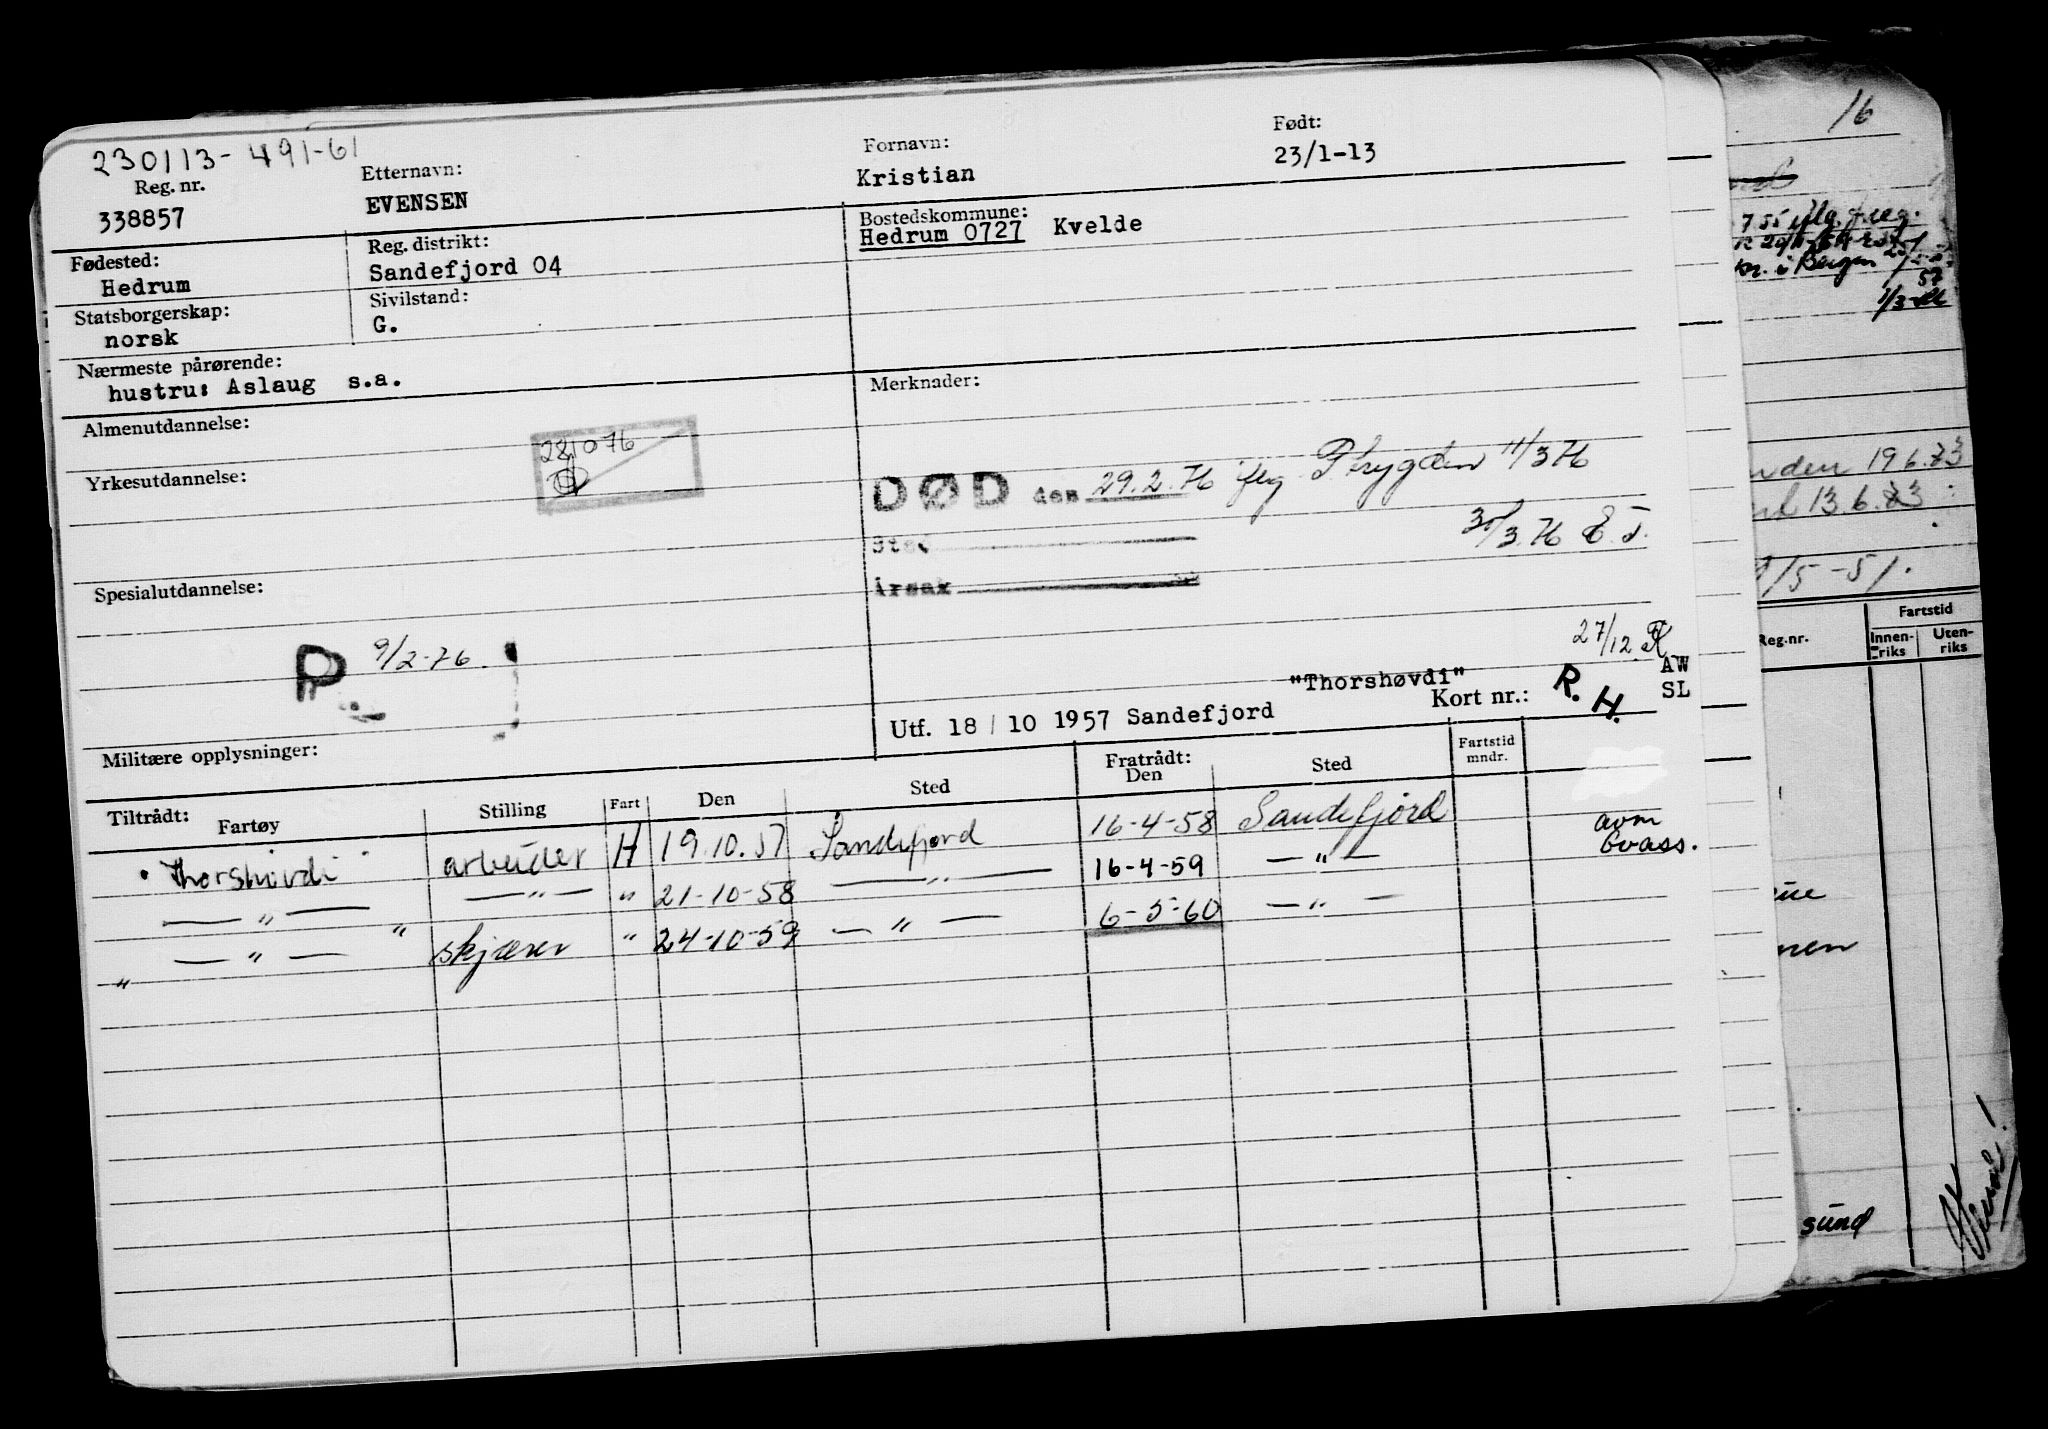 230113-491-61
Reg. nr. Etternavn: Fornavn: Født:
338857 EVENSEN Kristian 23/1-13
Fødested: Reg. distrikt: Bostedskommune:
Hedrum Sandefjord 04 Hedrum 0727 Kvelde
Statsborgerskap: Sivilstand:
norsk G.
Nærmeste pårørende:
hustru: Aslaug s.a.
Merknader:
Almenutdannelse:
281076
Yrkesutdannelse:
DØD den 29.2.76 11/3 76
Sted
30/3.76 E.T.
Årsak
Spesialutdannelse:
P 9/2-76.
27/12
AW
SL
"Thorshøvdi"
Utf. 18 / 10 1957 Sandefjord Kort nr.: R. H.
Militære opplysninger:
Tiltrådt: Fartøy Stilling Fart Den Sted Fratrådt: Den Sted Fartstid mndr.
"Thorshøvdi" arbeider H 19.10.57 Sandefjord 16-4-58 Sandefjord avm
— " — — " — " 21-10-58 — " — 16-4-59 — " — Ovass.
" — " — " skjærer " 24-10-59 — " — 6-5-60 — " —
16
19 6.73
13.6.73
/5-51.
Reg.nr. Fartstid
Innenriks Utenriks
sund